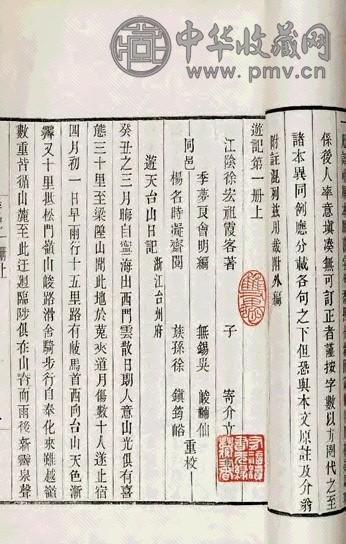 中华收藏网
www.pmv.cn
係後人率意填湊無可訂正者謹按字數以方圈代之至
諸本異同例應分載各句之下但恐與本文原註及介翁
附註混列兹用裁附外編
遊記第一册上
江陰徐宏祖霞客著 子 寄介立
季夢良會明編 無錫吳 峻 仙
同邑 重校
楊名時凝齋閱 族孫徐 鎮筠峪
遊天台山日記 浙江台州府
癸丑之三月晦自寧海出西門雲散日朗人意山光俱有喜
態三十里至梁隍山聞此地於菟夾道月傷數十人遂止宿
四月初一日早雨行十五里路有岐馬首西向台山天色漸
霽又十里抵松門嶺山峻路滑舍騎步行自奉化來雖越嶺
數重皆循山麓至此迂迴臨陟俱在山脊而雨後新霽泉聲